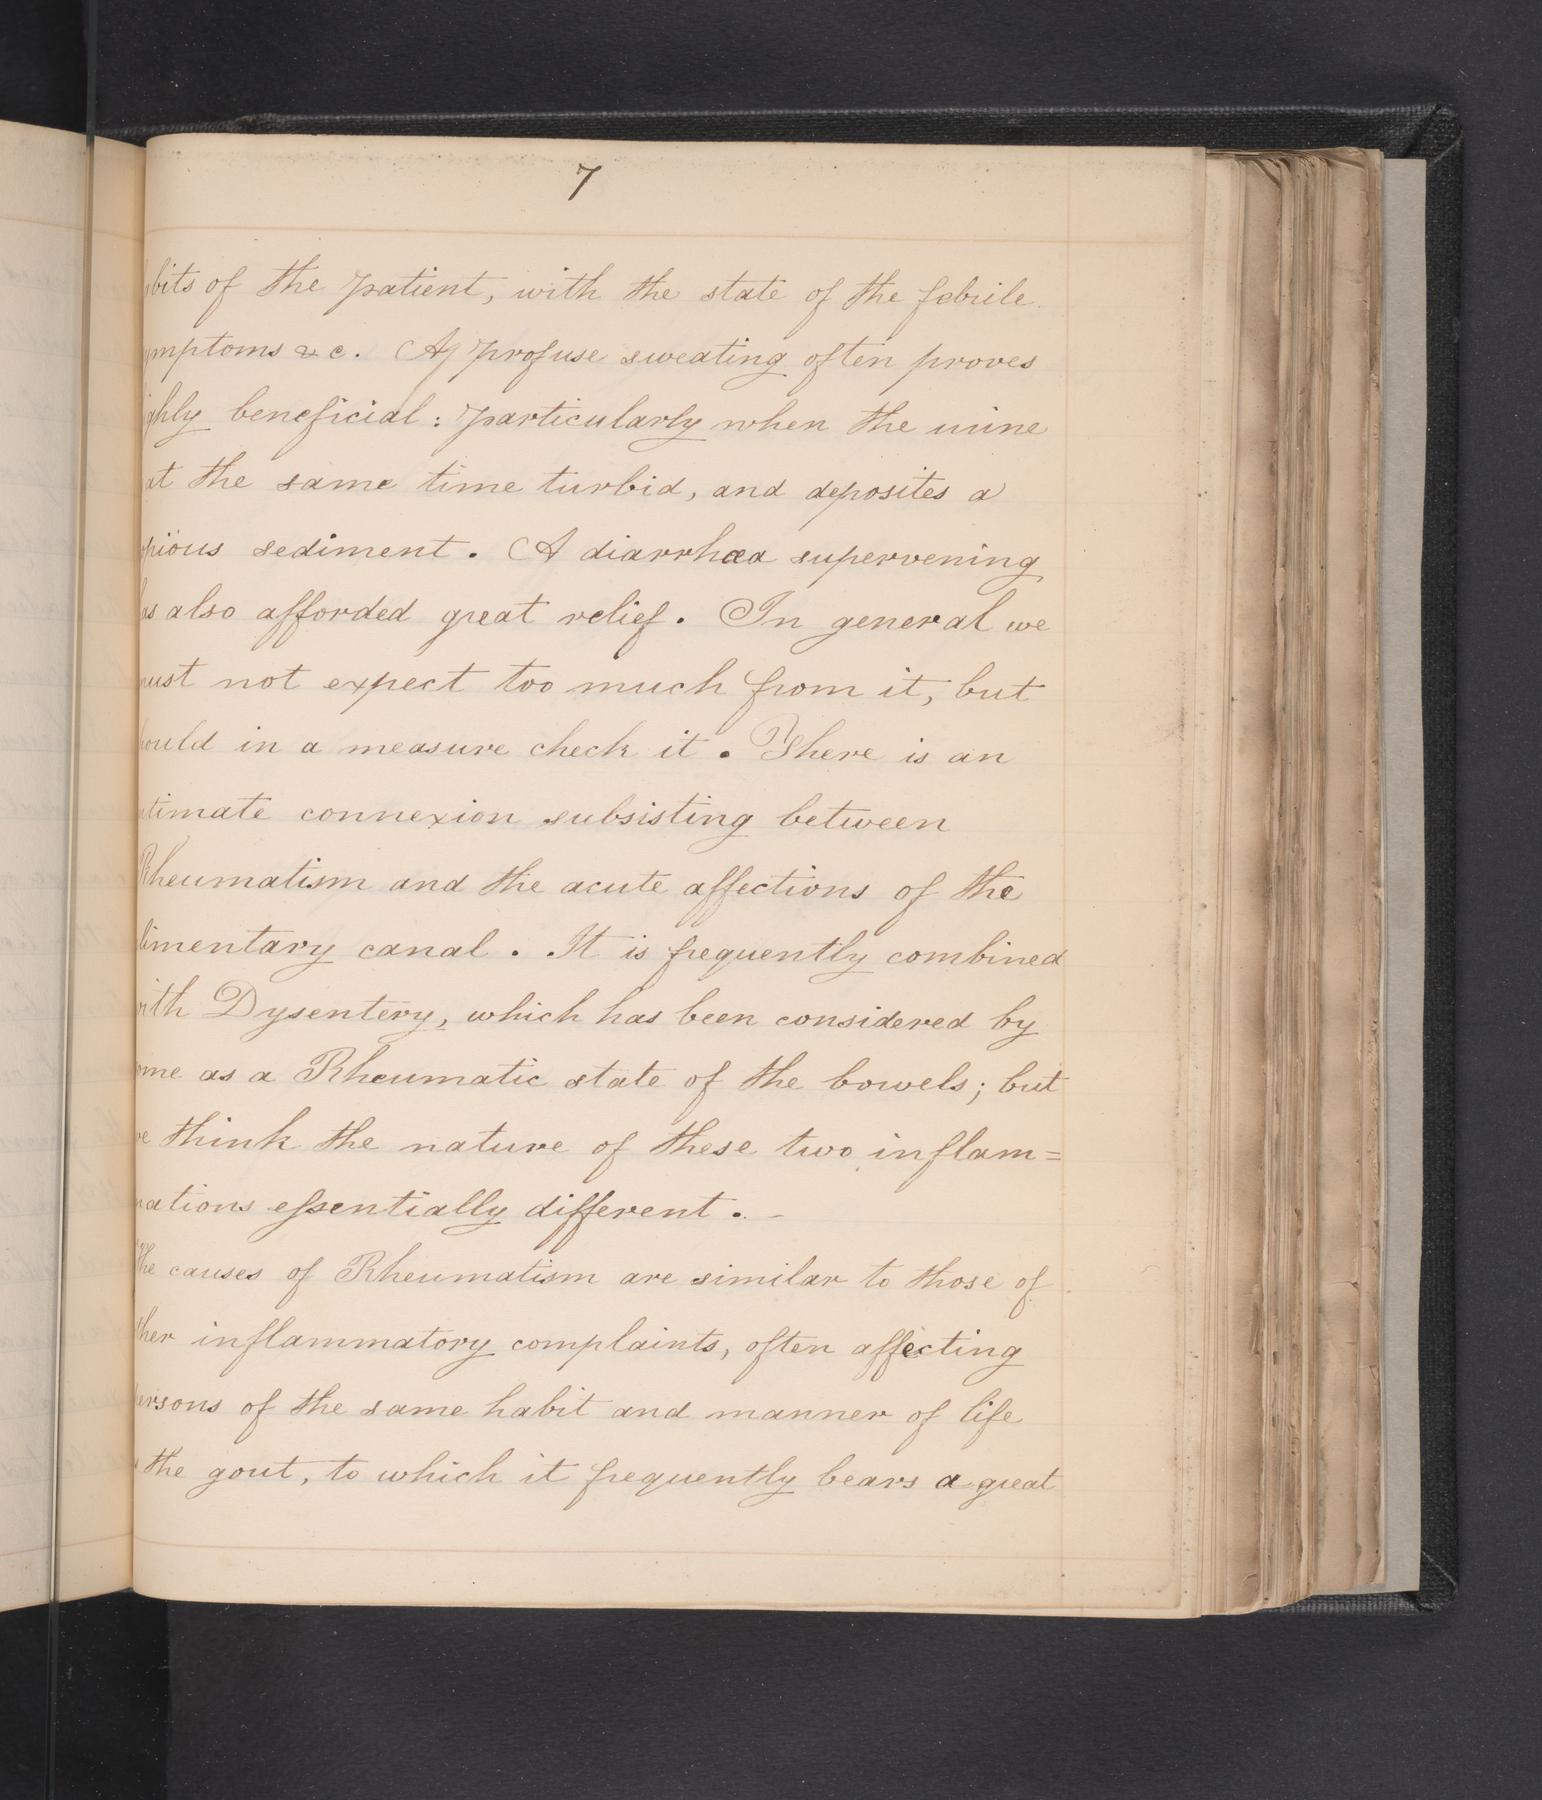 7
bits of the patient, with the state of the febrile
ymptoms &c. A profuse sweating often proves
ghly beneficial: particularly when the urine
at the same time turbid, and deposites a
pious sediment. A diarrhœa supervening
as also afforded great relief. In general we
ust not expect too much from it, but
hould in a measure check it. There is an
timate connexion subsisting between
Rheumatism and the acute affections of the
limentary canal. It is frequently combined
ith Dysentery, which has been considered by
ome as a Rheumatic state of the bowels; but
e think the nature of these two inflam=
ations essentially different. -
The causes of Rheumatism are similar to those of
ther inflammatory complaints, often affecting
ersons of the same habit and manner of life
the gout, to which it frequently bears a great